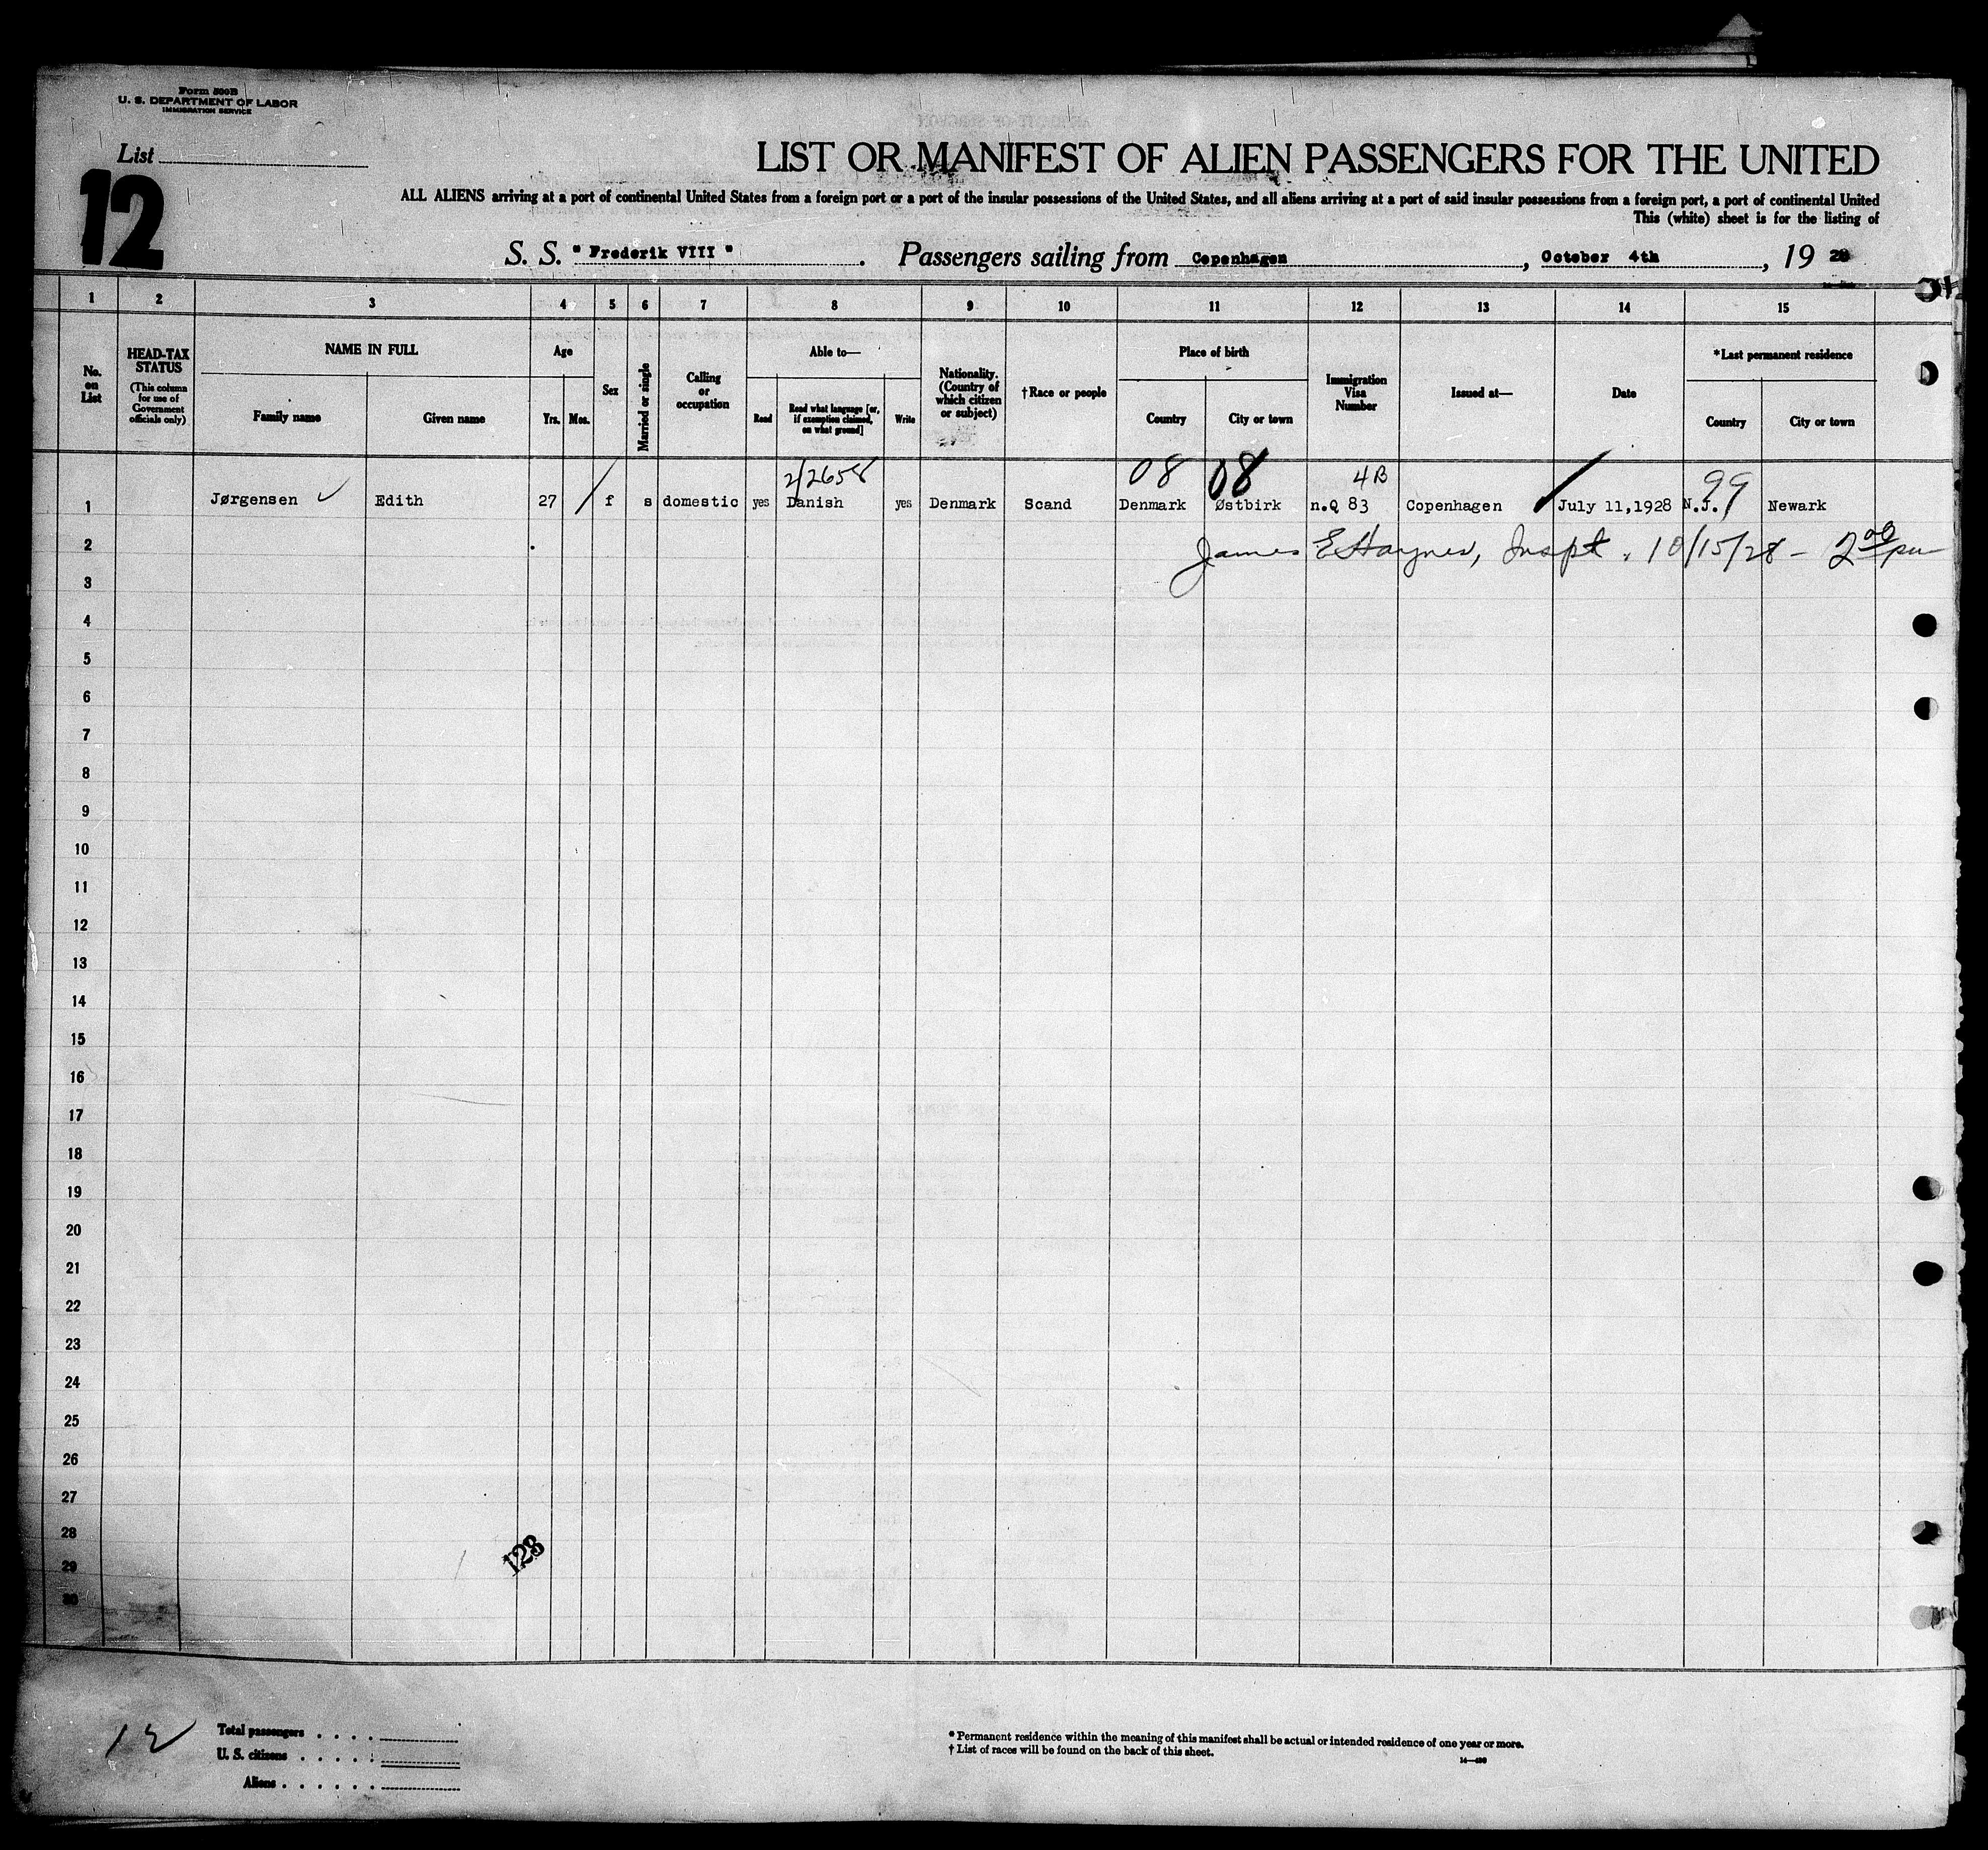 Form 500B
U. S. DEPARTMENT OF LABOR
IMMIGRATION SERVICE
List
12
LIST OR MANIFEST OF ALIEN PASSENGERS FOR THE UNITED
ALL ALIENS arriving at a port of continental United States from a foreign port or a port of the insular possessions of the United States, and all aliens arriving at a port of said insular possessions from a foreign port, a port of continental United
This (white) sheet is for the listing of
S. S. "Frederik VIII". Passengers sailing from Copenhagen, October 4th, 19 28
1 2 3 4 5 6 7 8 9 10 11 12 13 14 15
No. on List
HEAD-TAX STATUS
(This column for use of Government officials only)
NAME IN FULL
Family name
Given name
Age
Yrs. Mos.
Sex
Married or single
Calling or occupation
Able to—
Read
Read what language [or, if exemption claimed, on what ground]
Write
Nationality. (Country of which citizen or subject)
†Race or people
Place of birth
Country
City or town
Immigration Visa Number
Issued at—
Date
*Last permanent residence
Country
City or town
2/2658 08 08 4B 99
1 Jørgensen ✓ Edith 27 / f s domestic yes Danish yes Denmark Scand Denmark Østbirk n.Q 83 Copenhagen / July 11,1928 N.J. Newark
2 James E Haynes, Inspt. 10/15/28 - 2 00 pm
3
4
5
6
7
8
9
10
11
12
13
14
15
16
17
18
19
20
21
22
23
24
25
26
27
28
123
29
30
12
Total passengers . . . .
U. S. citizens . . . . .
Aliens . . . . . .
* Permanent residence within the meaning of this manifest shall be actual or intended residence of one year or more.
† List of races will be found on the back of this sheet.